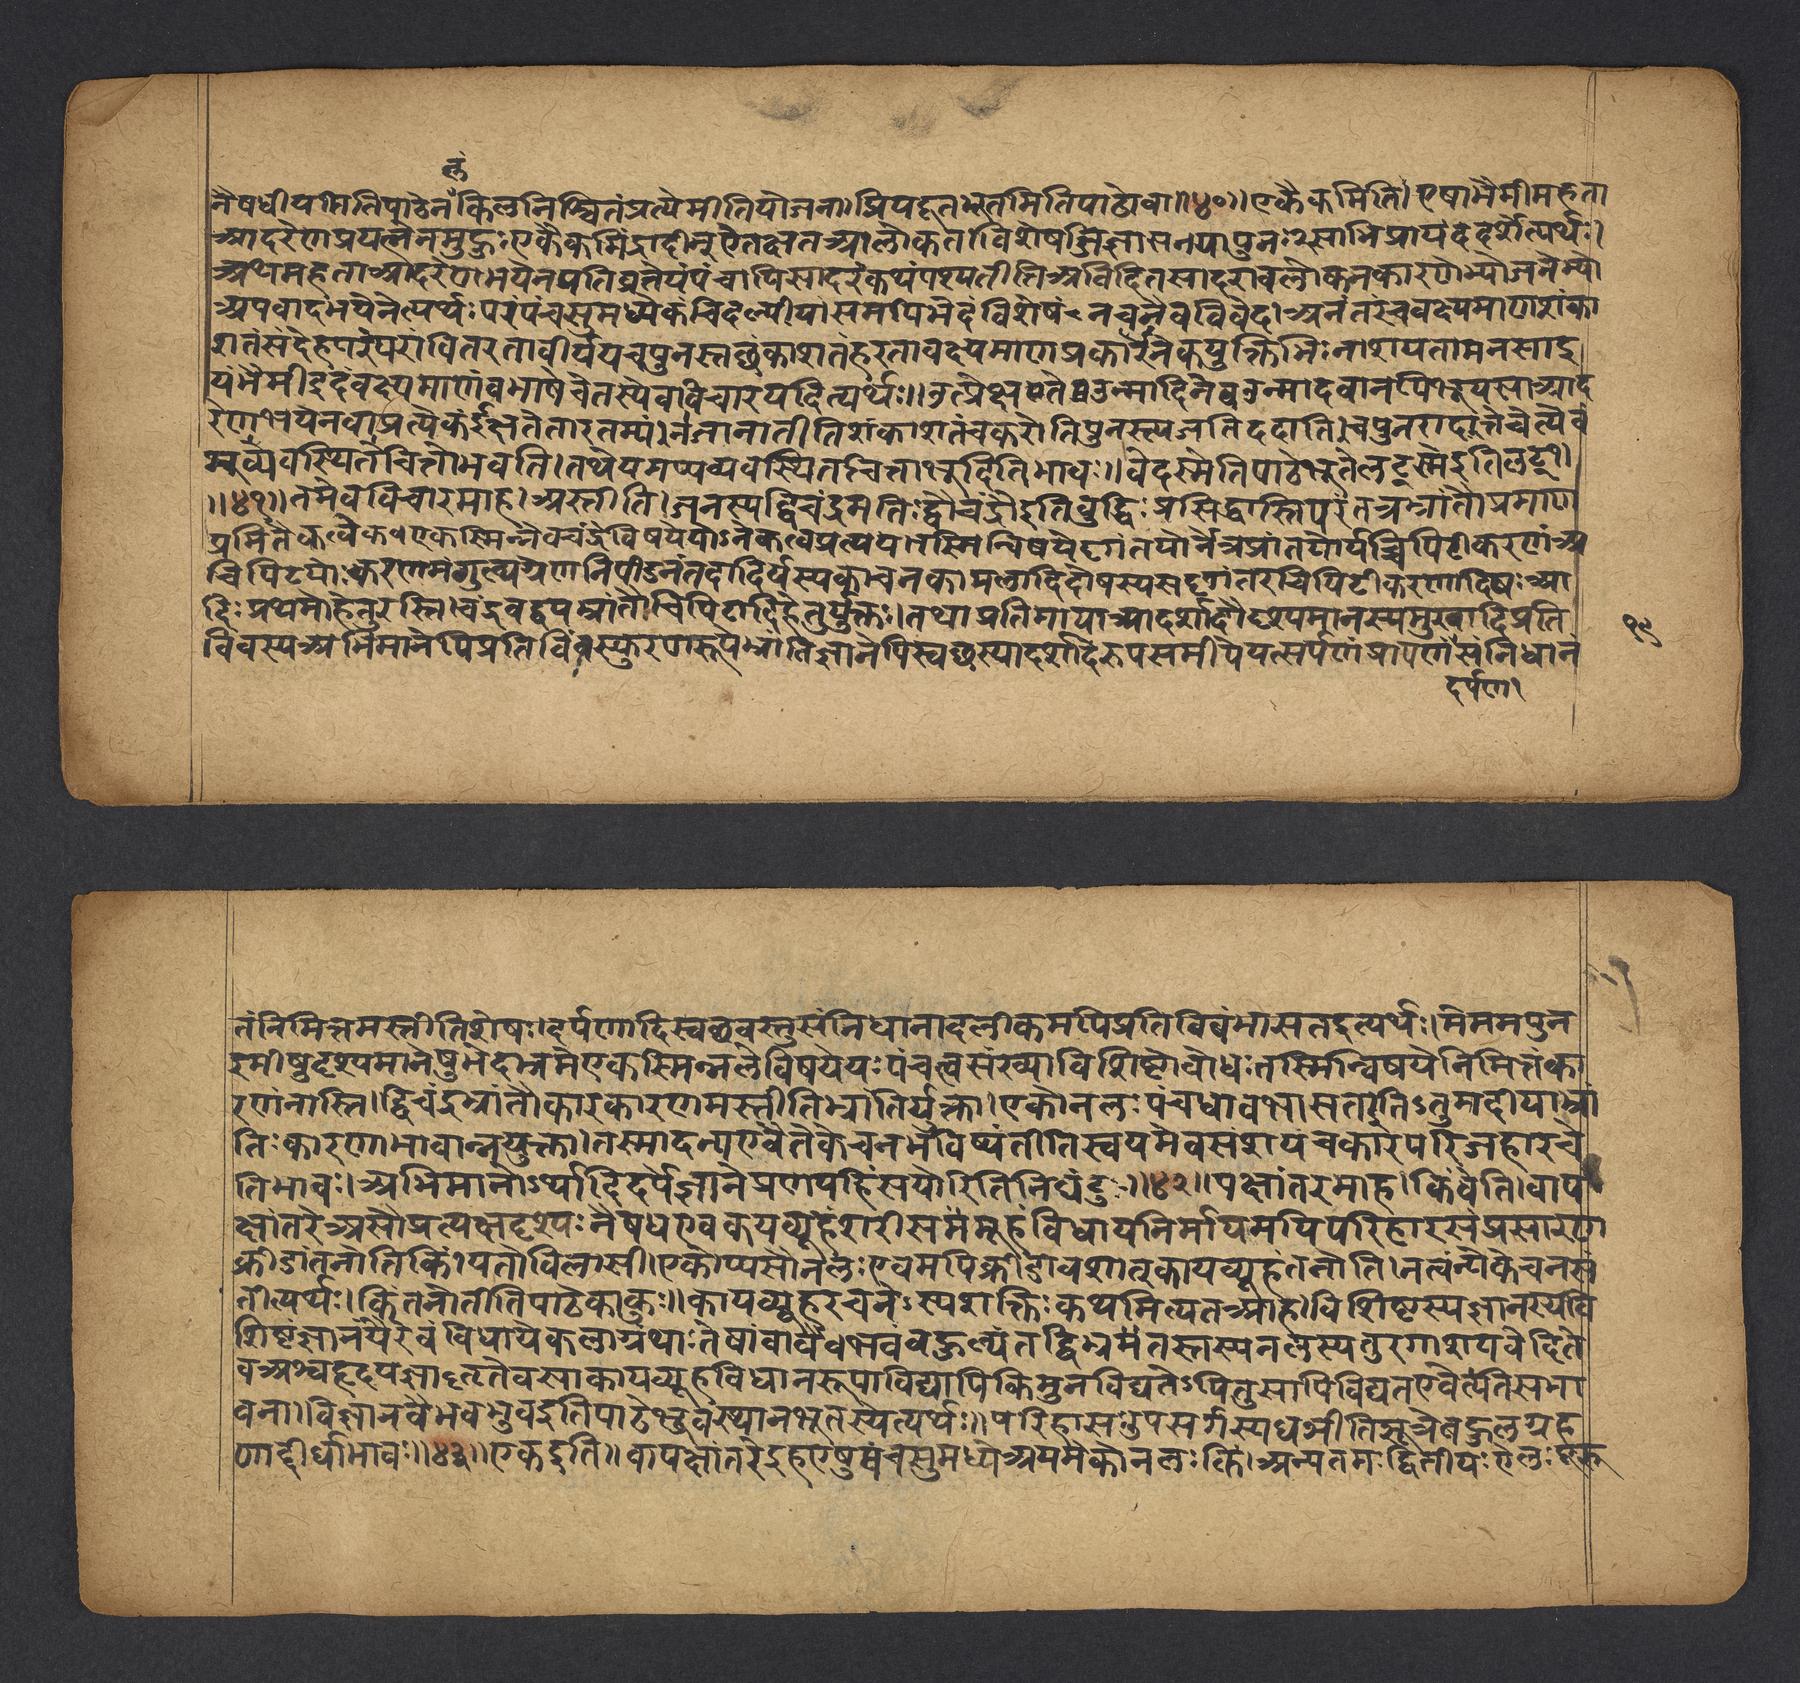 लं
नैषधीयमितिपाठेनकिलनिश्चितंप्रत्येमीतियोजना। प्रियदूतभूतमितिपाठोवा॥४०॥ एकैकमिति। एषाभैमीमहता
आदरेणप्रयत्नेनमुहुःएकैकमिंद्रादीमुऐतैक्षतआलोकत। विशेषजिज्ञासनयापुनः२साभिप्रायंददर्शेत्यर्थः।
अथमहताआदरेण।भयेनपतिव्रतेयंपंचापिसादरंकथंपश्यतीतिअविदितसादरावलोकनकारणेभ्योजनेभ्यो
अपवादभयेनेत्यर्थः परंपंचसुमध्येकंचिदल्पीयांसमपिभेदंविशेषं नचनैवविवेद।अनंतरंचवक्ष्यमाणशंका
शतंसंदेहपरंपरांवितरतावीर्ययचपुनस्तछंकाशतंहरतावक्ष्यमाणप्रकारेनैकयुक्तिभिःनाशयतामनसाइ
यंभैमीइदंवक्ष्यमाणंबभाषेचेतस्येवविचारयदित्यर्थः।
रेणभयेनवाप्रत्येकंईक्षतेतारतम्यं।नजानातीतिशंकाशतंचकरोतिपुनस्त्यजतिददाति।चपुनरादात्तेचेत्येवं
व्यवस्थितचित्तोभवति।तथेयमप्यव्यवस्थितचित्ताभूदितिभावः॥वेदस्मेतिपाठेभूतेलट्स्मेइतिलट्१।
॥४१॥तमेवविचारमाह।अस्तीति।जनस्यद्विचंद्रमतिःद्वौचंद्रौइतिबुद्धिःप्रसिद्धास्तिपरंतत्रभ्रांतौप्रमाण
प्रमितैकत्वैकएकस्मिन्नेवचंद्रेविषययोऽनेकत्वप्रत्ययःतस्मिन्विषयेदृगंतयोर्नेत्रप्रांतयोर्यच्चिपिटीकरणंअ
चिपिटयोःकरणमंगुल्यग्रेणनिपीडनंतदादिर्यस्यकाचनकामलादिदोषस्यसदृगंतरचिपिटीकरणादिषःआ
दिःप्रथमोहेतुरस्ति।चंद्रवद्वयभ्रांतौचिपिटादिहेतुर्युक्तः।तथाप्रतिमायाआदर्शादौदृश्यमानस्यमुखादिप्रति
विंवस्यअभिमानेपिप्रतिविंवस्फुरणरूपभ्रांतिज्ञानेपिस्वछस्यादर्शादिरूपसमीपेयत्सर्पणंप्रापणंसंनिधानं
१९
दर्पण।
तंनिमित्तमस्तीतिशेषः।दर्पणादिस्वछवस्तुसंनिधानादलीकमपिप्रतिविंवंभासतइत्यर्थः।मेममपुन
रमीषुदृश्यमानेषुभेदाभ्रमेएकस्मिन्नलेविषयेयःपंचत्वसंख्याविशिष्टोबोधःतस्मिन्विषयेनिमित्तंका
रणंनास्ति।द्विचंद्रभ्रांतौकारकारणमस्तीतिभ्रांतिर्युक्ता।एकोनलःपंचधावभासतइतितुमदीयाभ्रां
तिःकारणाभावान्नयुक्ता।तस्मादन्यएवैतेकेचनभविष्यंतीतिस्वयमेवसंशयंचकारपरिजहारचे
तिभावः।अभिमानोऽर्थादिदर्पेज्ञानेप्रणयहिंसयोरितिनिघंटुः॥४२॥पक्षांतरमाह।किंवेति।वाप
क्षांतरेअसौप्रत्यक्षदृश्यःनैषधएवकयव्यूहंशरीरसमूहंविधायनिर्मायमयिपरिहारसंप्रसारण
क्रीडांतनोतिकिं।यतोविलासी।एकोप्यसौनलःएवमपिक्रीडावशात्कायव्यूहंतनोति।नत्वन्येकेचनसं
तीत्यर्थः।किंतनोतीतिपाठेकाकुः॥कायव्यूहरचनेऽस्यशक्तिःकथमित्यतआह।विशिष्टस्यज्ञानस्यवि
शिष्टंज्ञानंयैरेवंविधायेकलाग्रंथाःतेषांवावैभवंबहुल्यंतद्विभ्रमेतस्तस्यनलस्यतुरगाशयवेदिते
वअश्वहृदयज्ञातृतेवसाकायव्यूहविधानरूपाविद्यापिकिमुनविद्यतेऽपितुसापिविद्यतएवेत्येतिसंभा
वना।विज्ञानवैभवभुवइतिपाठेभुवंस्थानभूतस्येत्यर्थः॥परिहासउपसर्गस्यघञीतिसूत्रेबहुलग्रह
णाद्दीर्घाभावः॥४३॥एकइति॥वापक्षांतरेइहएषुपंचसुमध्येअयमेकोनलःकिं।अन्यतमःद्वितीयःएलः